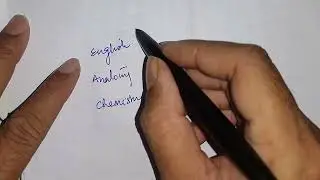 English
Anatomy
Chemistr